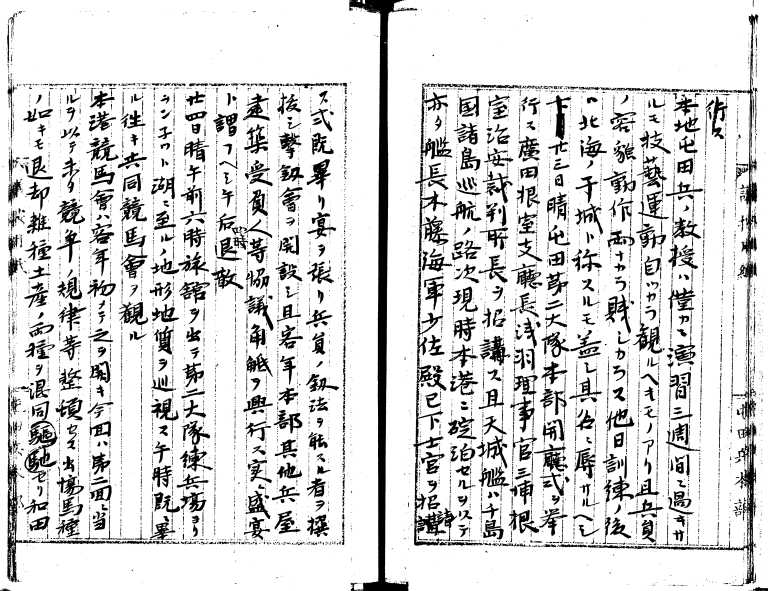 行ス
本地屯田兵ノ教授ハ僅カニ演習三週間ニ過キサ
ルモ技藝運動自ツカラ観ルヘキモノアリ且兵員
ノ容貌動作両ナカラ賤シカラス他日訓練ノ後
ハ北海ノ干城ト称スルモ盖シ其名ニ辱サルヘシ
廿三日晴屯田第二大隊本部開廳式ヲ挙
行ス廣田根室支廳長浅羽理事官三浦根
室治安裁判所長ヲ招請ス且天城艦ハ千島
国諸島巡航ノ路次現時本港ニ碇泊セルヲ以テ
亦タ艦長本藤海軍少佐殿已下士官ヲ招請
ス式既畢リ宴ヲ張リ兵員ノ釼法ヲ能スル者ヲ撰
抜シ撃釼會ヲ開設シ且客年本部其他兵屋
建築受負人等協議角觝ヲ興行ス実ニ盛宴
ト謂フヘシ午后四時退散
廿四日晴午前六時旅舘ヲ出テ第二大隊練兵場ヨリ
湖ニ至ルノ地形地質ヲ巡視ス午時既畢
ル往キ共同競馬會ヲ観ル
本港競馬會ハ客年初メテ之ヲ開キ今回ハ第二回ニ当
ルヲ以テ未タ競争ノ規律等整頓セス出場馬種
ノ如キモ退却雑種土産ノ両種ヲ混同驅馳セリ和田